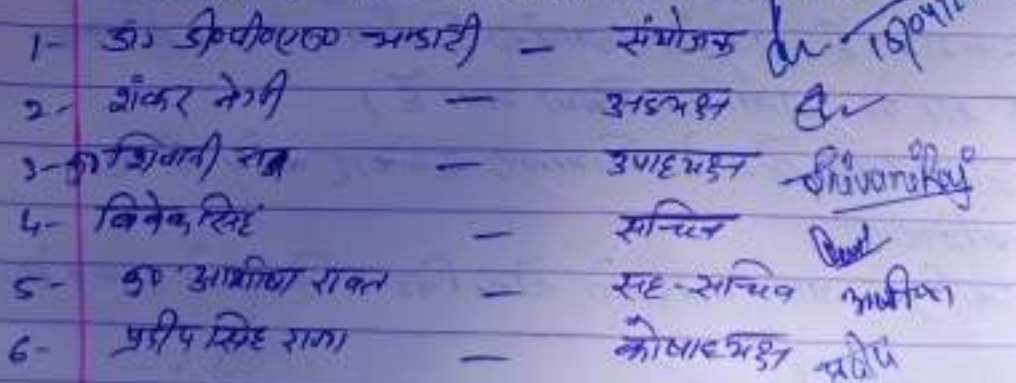 1- डा० डी०पी०एस० भण्डारी - संयोजक
2- शंकर नेगी - अध्यक्ष
3- कु० शिवानी राज - उपाध्यक्ष ShivaniRaj
4- विवेक सिंह - सचिव
5- कु० आशीषा रावत - सह-सचिव आशीषा
6- प्रदीप सिंह राणा - कोषाध्यक्ष प्रदीप